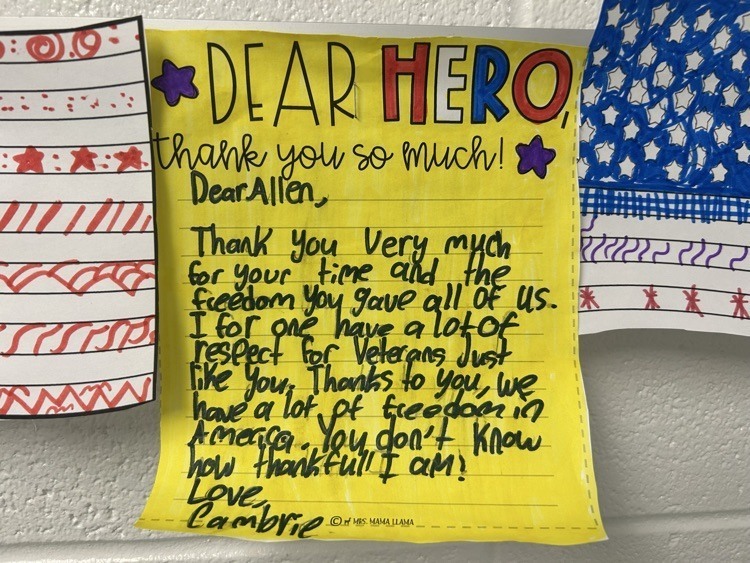 DEAR HERO,
thank you so much!
Dear Allen,
Thank you very much
for your time and the
freedom you gave all of us.
I for one have a lot of
respect for Veterans Just
like you. Thanks to you, we
have a lot of freedom in
America. You don't know
how thankfull I am!
Love,
Cambrie
© MRS. MAMA LLAMA